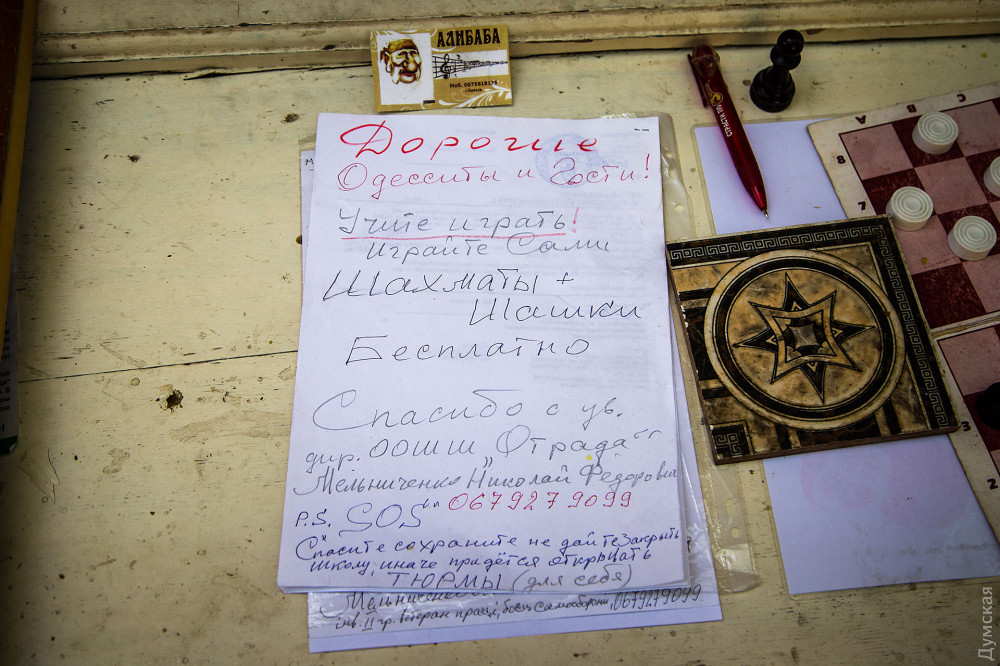 АЛИБАБА
Моб. 0675518175
г.Одесса
Дорогие
Одесситы и Гости!
Учите играть!
Играйте Сами
Шахматы +
Шашки
Бесплатно
Спасибо с ув.
дир. ООШШ „Отрада"
Мельниченко Николай Фёдорович
0679279099
P.S. „SOS"
Спасите сохраните не дайте закрыть
школу, иначе придётся открывать
ТЮРМЫ (для себя)
Мельниченко
інв. II гр. Ветеран праці, боєць Самооборони, 0679279099
B
C
8
7
3
2
Думская